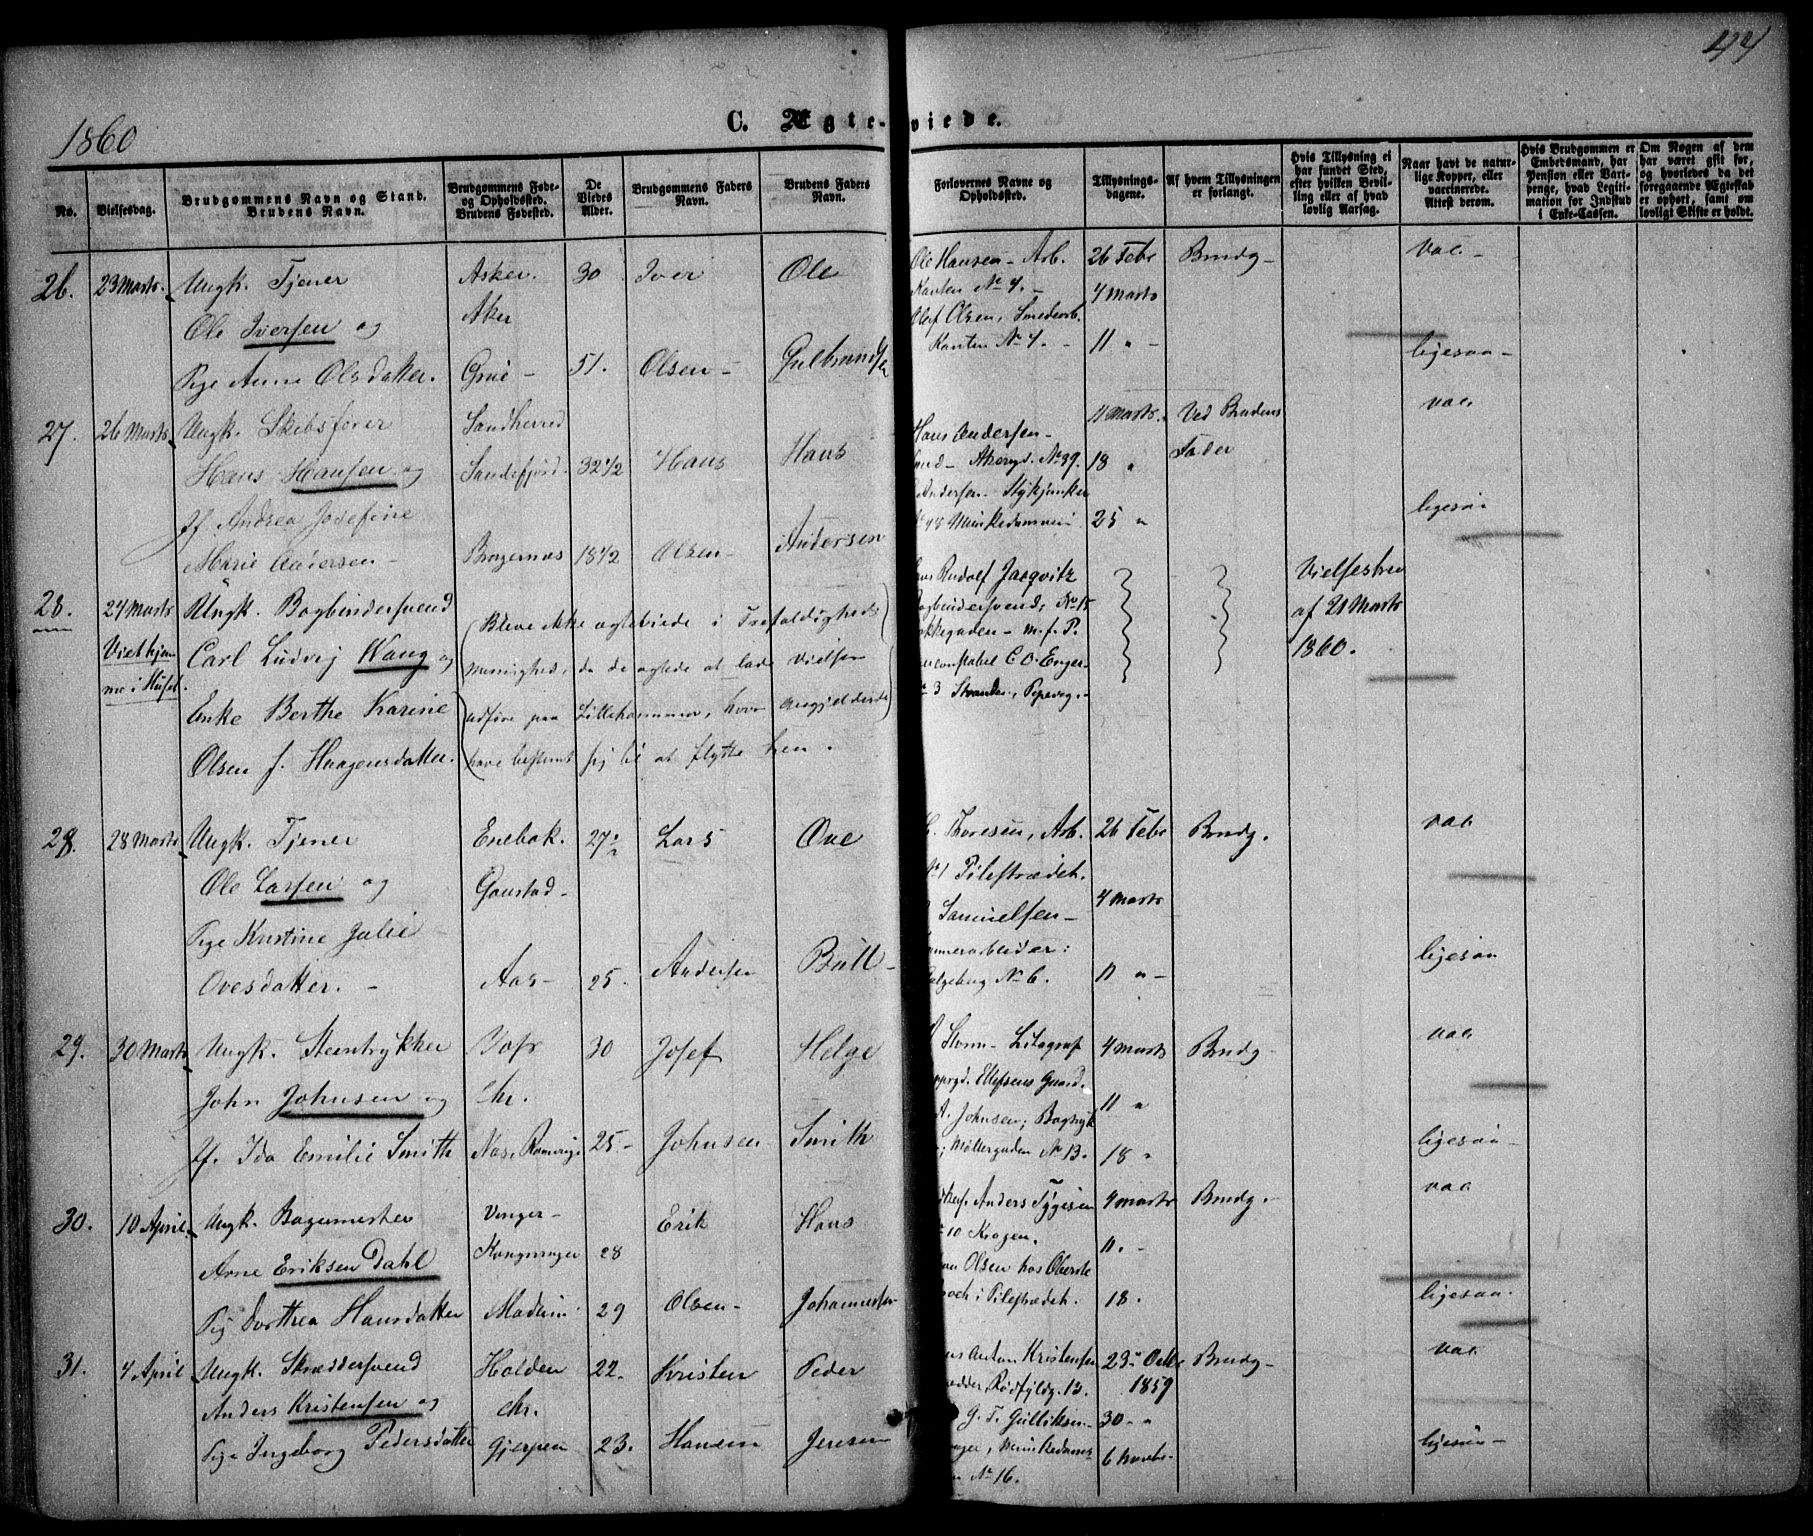 44
1860
C. Ægte-viede.
No.
Vielsesdag.
Brudgommens Navn og Stand. Brudens Navn.
Brudgommens Føde- og Opholdssted. Brudens Fødested.
De Viedes Alder.
Brudgommens Faders Navn.
Brudens Faders Navn.
Forlovernes Navne og Opholdssted.
Tillysnings-dagene.
Af hvem Tillysningen er forlangt.
Hvis Tillysning ei har fundet Sted, efter hvilken Bevilling eller af hvad lovlig Aarsag.
Naar havt de naturlige Kopper, eller vaccinerede. Attest derom.
Hvis Brudgommen er Embedsmand, har Pension eller Vartpenge, hvad Legitimation for Indskud i Enke-Cassen.
Om Nogen af dem har været gift før, og hvorledes da det foregaaende Ægteskab er ophørt, samt om lovligt Skifte er holdt.
26. 23 Marts. Ungk. Tjener Asker. 30 Iver Ole Ole Hansen - Arb. 26 Febr Brudg - vac -
Ole Iversen og Aker Kanten No 4. - 4 Marts
Olaf Olsen, Smedearb.
Pige Anne Olsdatter. Grue - 51. Olsen - Gulbrandsen Kanten No 4. - 11 " - ligesaa -
27. 26 Marts Ungk. Skibsfører Sandherred 11 Marts. Ved Brudens vac.
Hans Hansen og Sandefjord. 32 1/2 Hans Hans Hans Andersen - Fader
Akersgd. No 39. 18 "
Jf. Andrea Josefine Andersen - Stykjunker ligesaa
Marie Andersen - Bragernæs 18 1/2 Olsen - Andersen 48 Munkedamsvei 25 "
28. 24 Marts Ungk. Bogbindersvend (Bleve ikke ægteviede i Trefoldigheds Rudolf Jacqvitz Vielsesbrev
Viet hjem- Carl Ludvig Wang og menighed, da de agtede at lade Vielsen Bogbindersvend, No 15 af 21 Marts
me i Huset. Enke Berthe Karine udføre paa Lillehammer, hvor angjeldende akkegaden - m. f. P. 1860.
Olsen f. Haagensdatter. have bestemt sig til at flytte hen. constabel C. O. Enger
3 Stranden, Pipervig. -
28. 28 Marts Ungk. Tjener Enebak. 27 1/2 Lars Ove Thoresen, Arb. 26 Febr Brudg. vac
Ole Larsen og Gaustad - No 1 Pilestrædet.
Samuelsen - 4 Marts
Pige Kristine Julie arbeider: ligesaa
Ovesdatter. - Aas - 25. Andersen Bull - No 6. 11 " -
29. 30 Marts Ungk. Steentrykker 30 Josef Helge Storm - Litograf 4 Marts Brudg - vac
John Johnsen og Chr. Ellefsens Gaard. 11 "
Johnsen; Bogtryk
Jf. Ida Emilie Smith Næs, Romerige 25 - Johnsen Smith Møllergaden No 13. 18 " ligesaa -
30. 10 April. Ungk. Bagermester Vinger - Erik Hans Anders Tygesen 4 Marts Brudg. - vac
Arne Eriksen Dahl Kongsvinger 28 10 Krogen. 11. -
Olsen hos Oberste
Pig Dorthea Hansdatter Modum 29 Olsen - Johannesen och i Pilestrædet. 18. ligesaa.
31. 4 April Ungk. Skræddersvend Halden 22. Kristen Peder Anton Kristensen 23 Octbr Brudg - vac
Anders Kristensen og Chr. 1859
G. T. Gulliksen - 30 - "
Pige Ingeborg Pedersdatter Gjerpen 23. Hansen Jensen Munkedams 6 Novbr - ligesaa -
No 16.